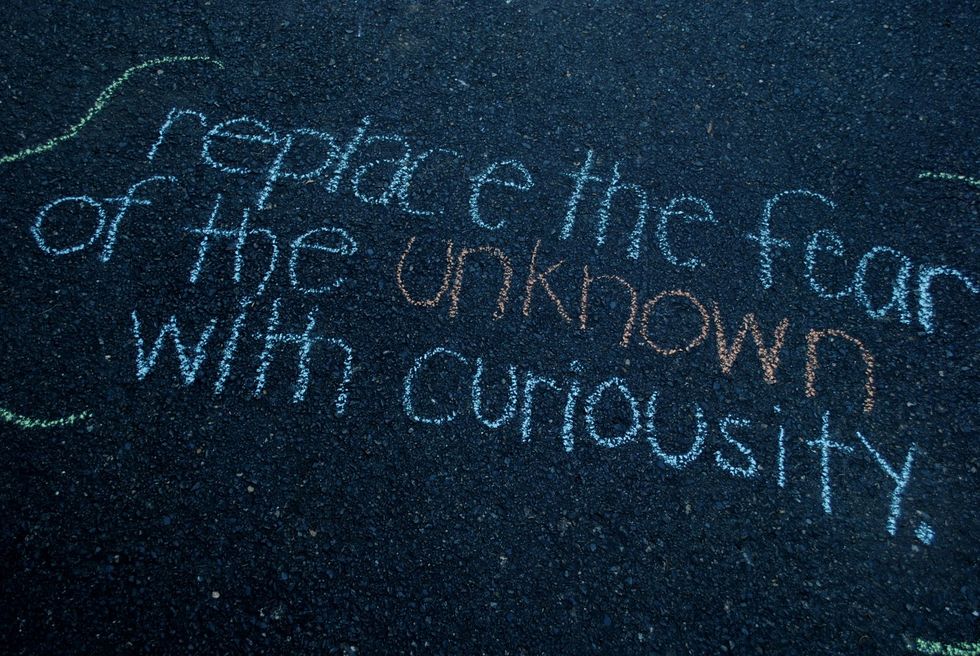 replace the fear
of the unknown
with curiousity.